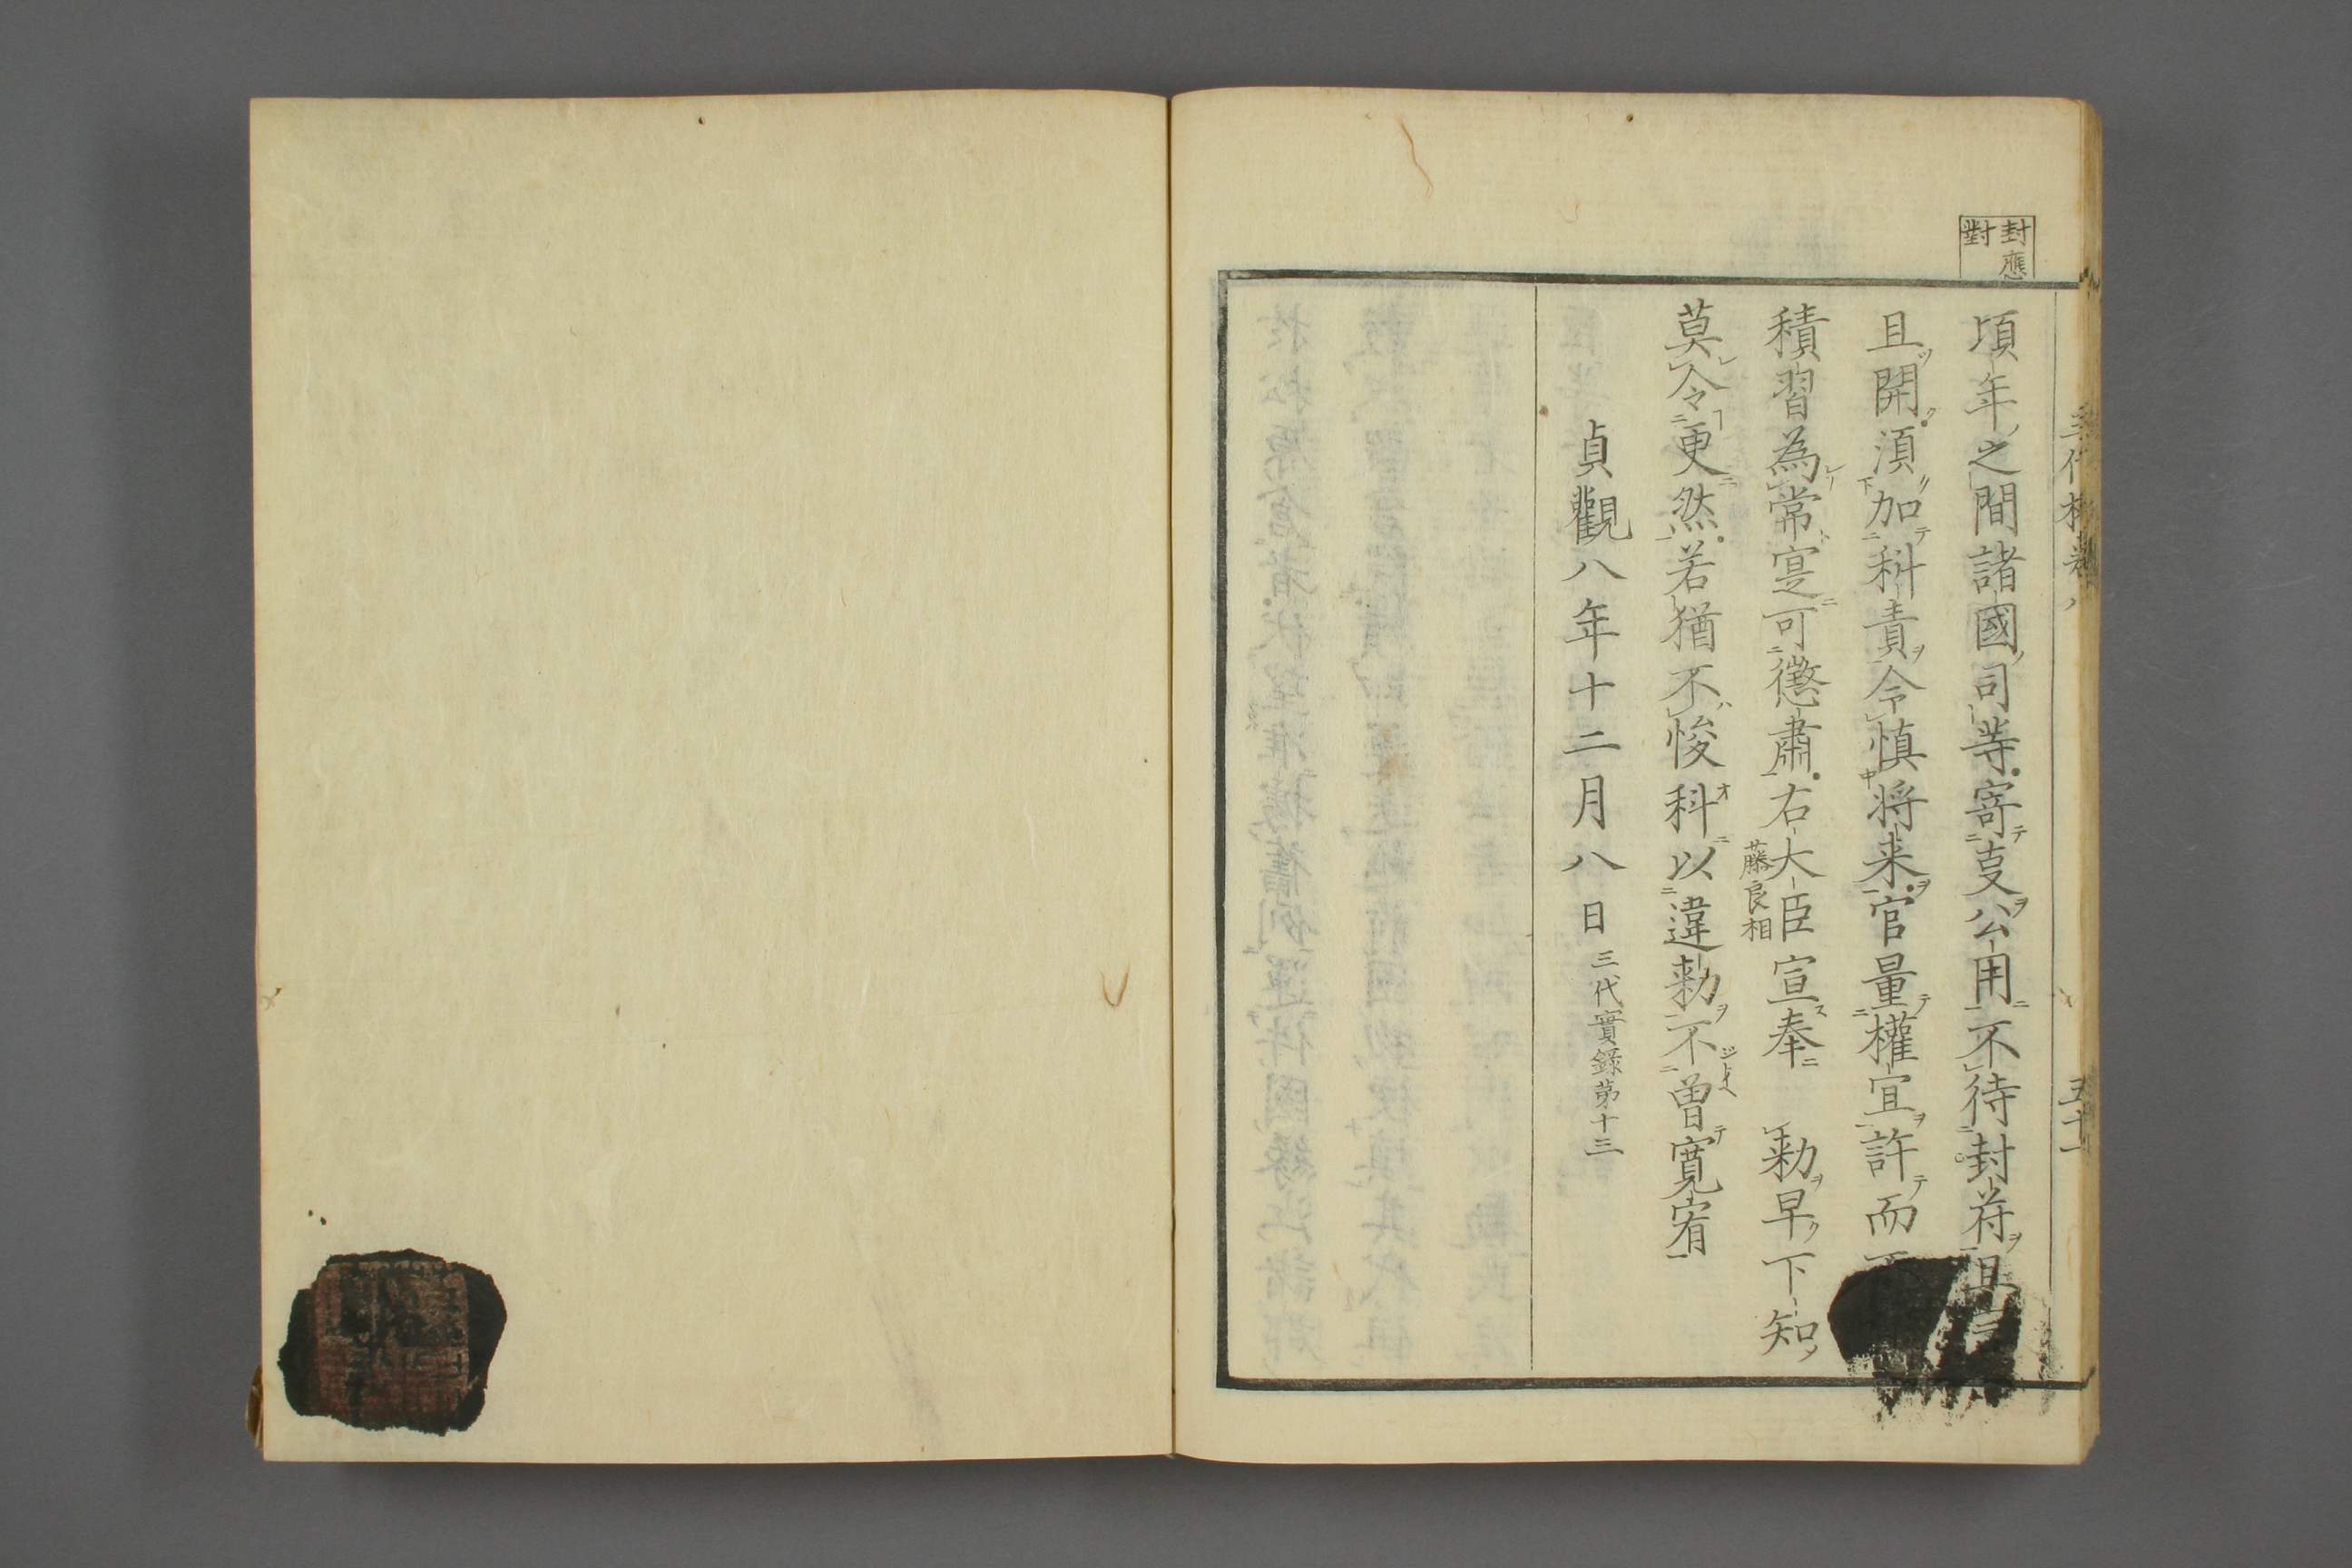 封應
對
頃年之間諸國司等寄㕝公用不待封符且
且開須加科責令慎将来官量權宜許而
積習為常寔可懲肅右大臣宣奉　勅早下知
藤良相
莫令更然若猶不悛科以違勅不曽寛宥
貞觀八年十二月八日三代實録第十三